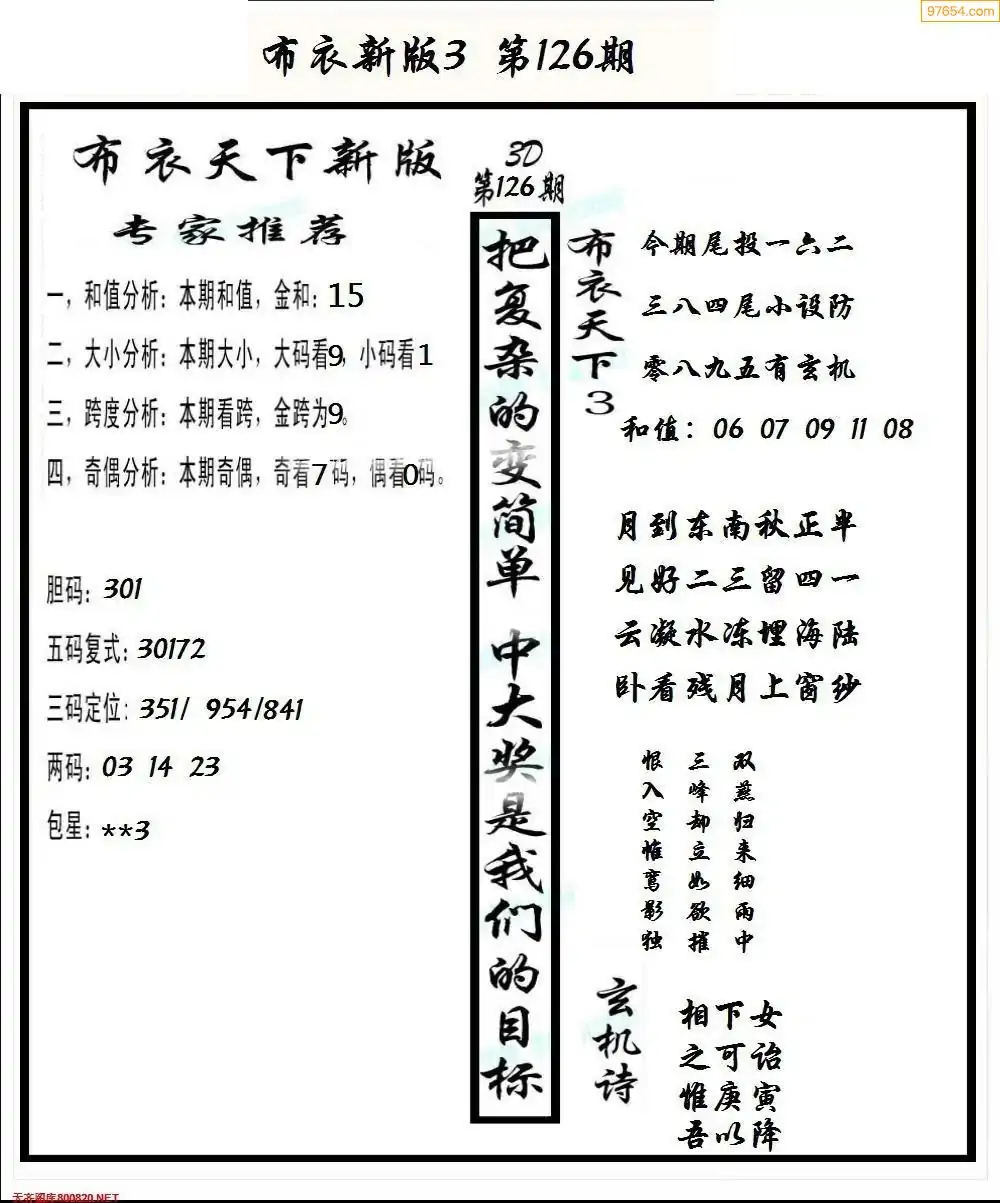 97654.com
布衣新版3 第126期
布衣天下新版
专家推荐
一，和值分析：本期和值，金和：15
二，大小分析：本期大小，大码看9，小码看1
三，跨度分析：本期看跨，金跨为9。
四，奇偶分析：本期奇偶，奇看7码，偶看0码。
胆码：301
五码复式：30172
三码定位：351/ 954/841
两码：03 14 23
包星：**3
3D
第126期
把复杂的变简单 中大奖是我们的目标
布衣天下3
今期尾投一六二
三八四尾小设防
零八九五有玄机
和值：06 07 09 11 08
月到东南秋正半
见好二三留四一
云凝水冻埋海陆
卧看残月上窗纱
双燕归来细雨中
三峰却立如欲摧
恨入空惟鸾影独
玄机诗
相下女
之可诒
惟庚寅
吾以降
天齐图库800820.NET